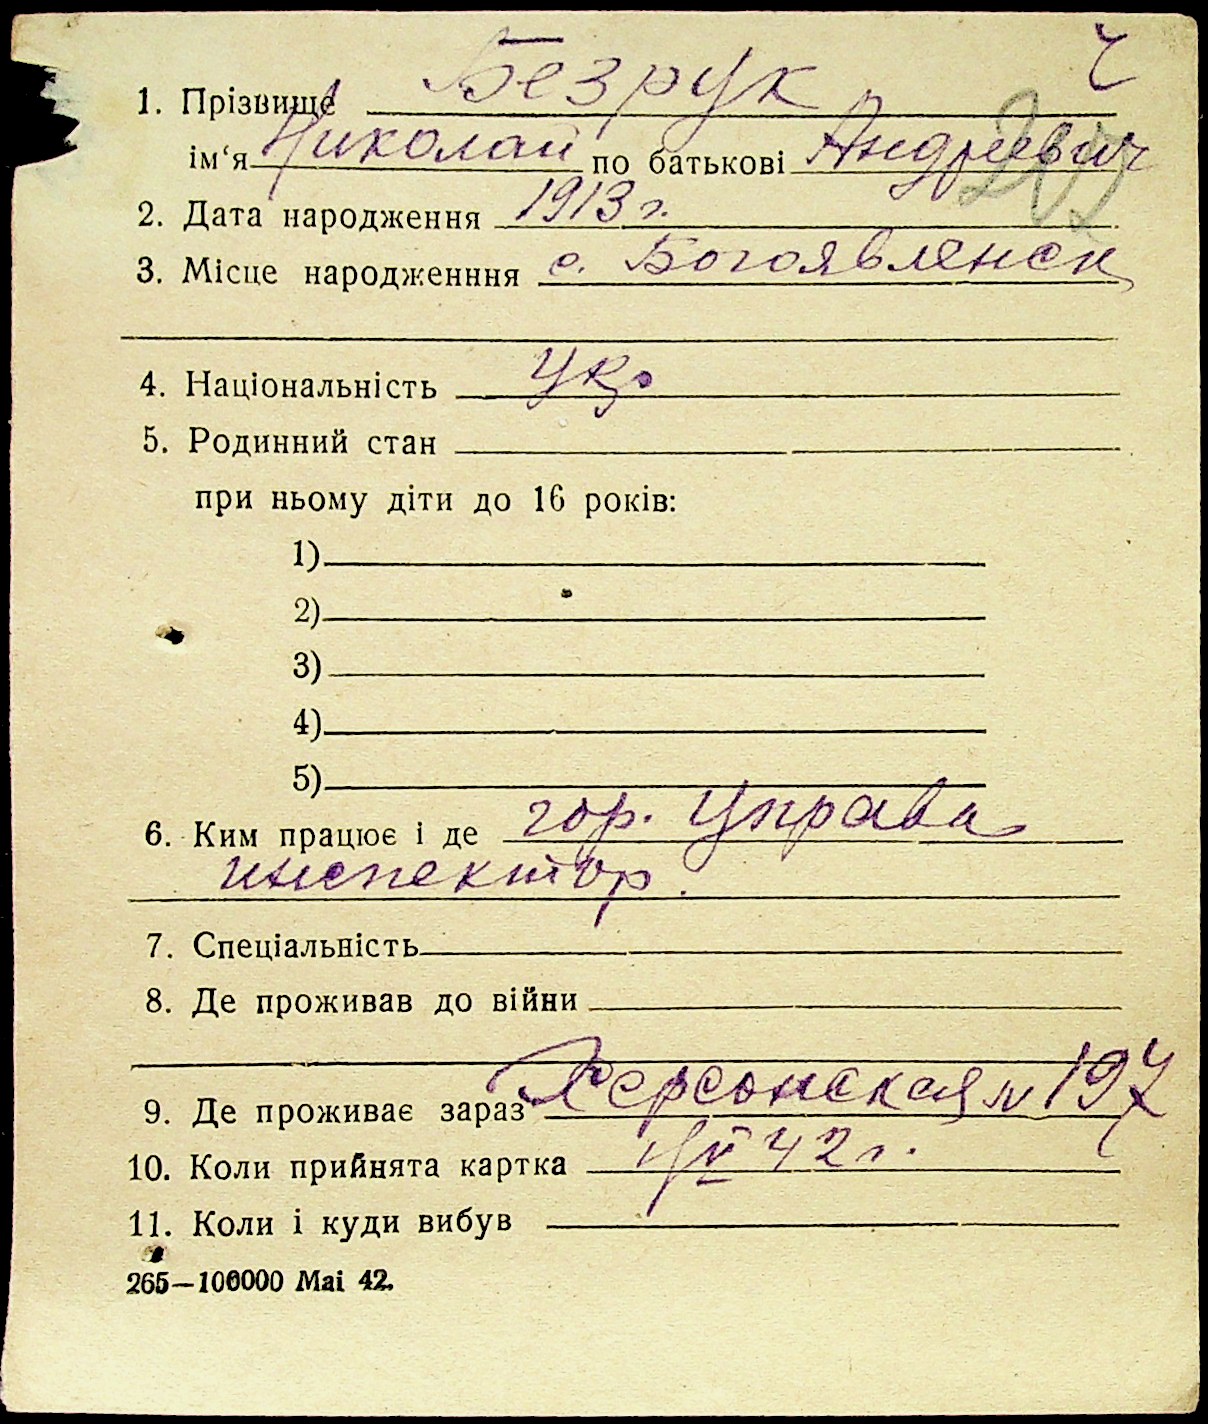 1. Прізвище Безрук
ім‘я Николай по батькові Андреевич
2. Дата народження 1913 г.
3. Місце народженння с. Богоявленск
4. Національність укр.
5. Родинний стан
при ньому діти до 16 років:
1)
2)
3)
4)
5)
6. Ким працює і де гор. Управа
инспектор.
7. Спеціальність
8. Де проживав до війни
9. Де проживає зараз Херсонская № 197
10. Коли прийнята картка 42 г.
11. Коли і куди вибув
265—100000 Mai 42.